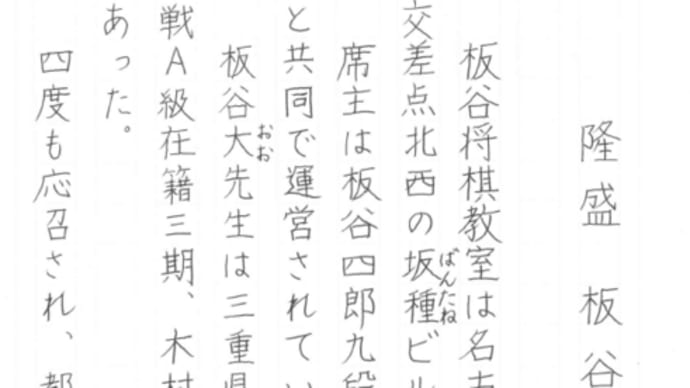 隆盛 板谷
板谷将棋教室は名古
交差点北西の坂種ビル
ばんたね
席主は板谷四郎九段
と共同で運営されてい
板谷大先生は三重県
おお
戦A級在籍三期、木村
あった。
四度も応召され、都